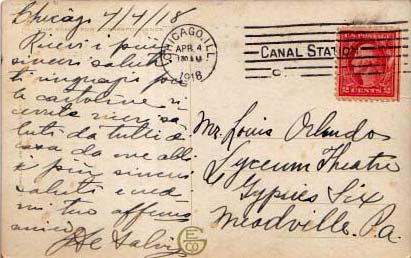 Chicago 4/4/18
Ricevi i piu
sinceri saluti
ti ringrazio per
le cartoline ri
cevute
saluti da tutti di
casa da me abbi
i piu sinceri
saluti e cred
mi tuo affemo
amico
De Salvi
CHICAGO, ILL.
APR 4
1918
CANAL STATION
2 CENTS 2
Mr. Louis Orlandos
Lyceum Theatre
Gypsies Six
Meadville. Pa.